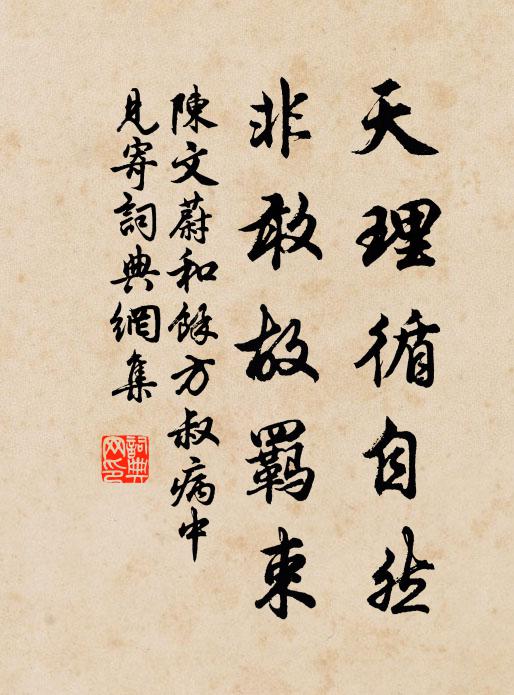 天理循自然
非敢故羈束
陳文蔚和餘方叔病中
見寄詞典網集
詞典網印